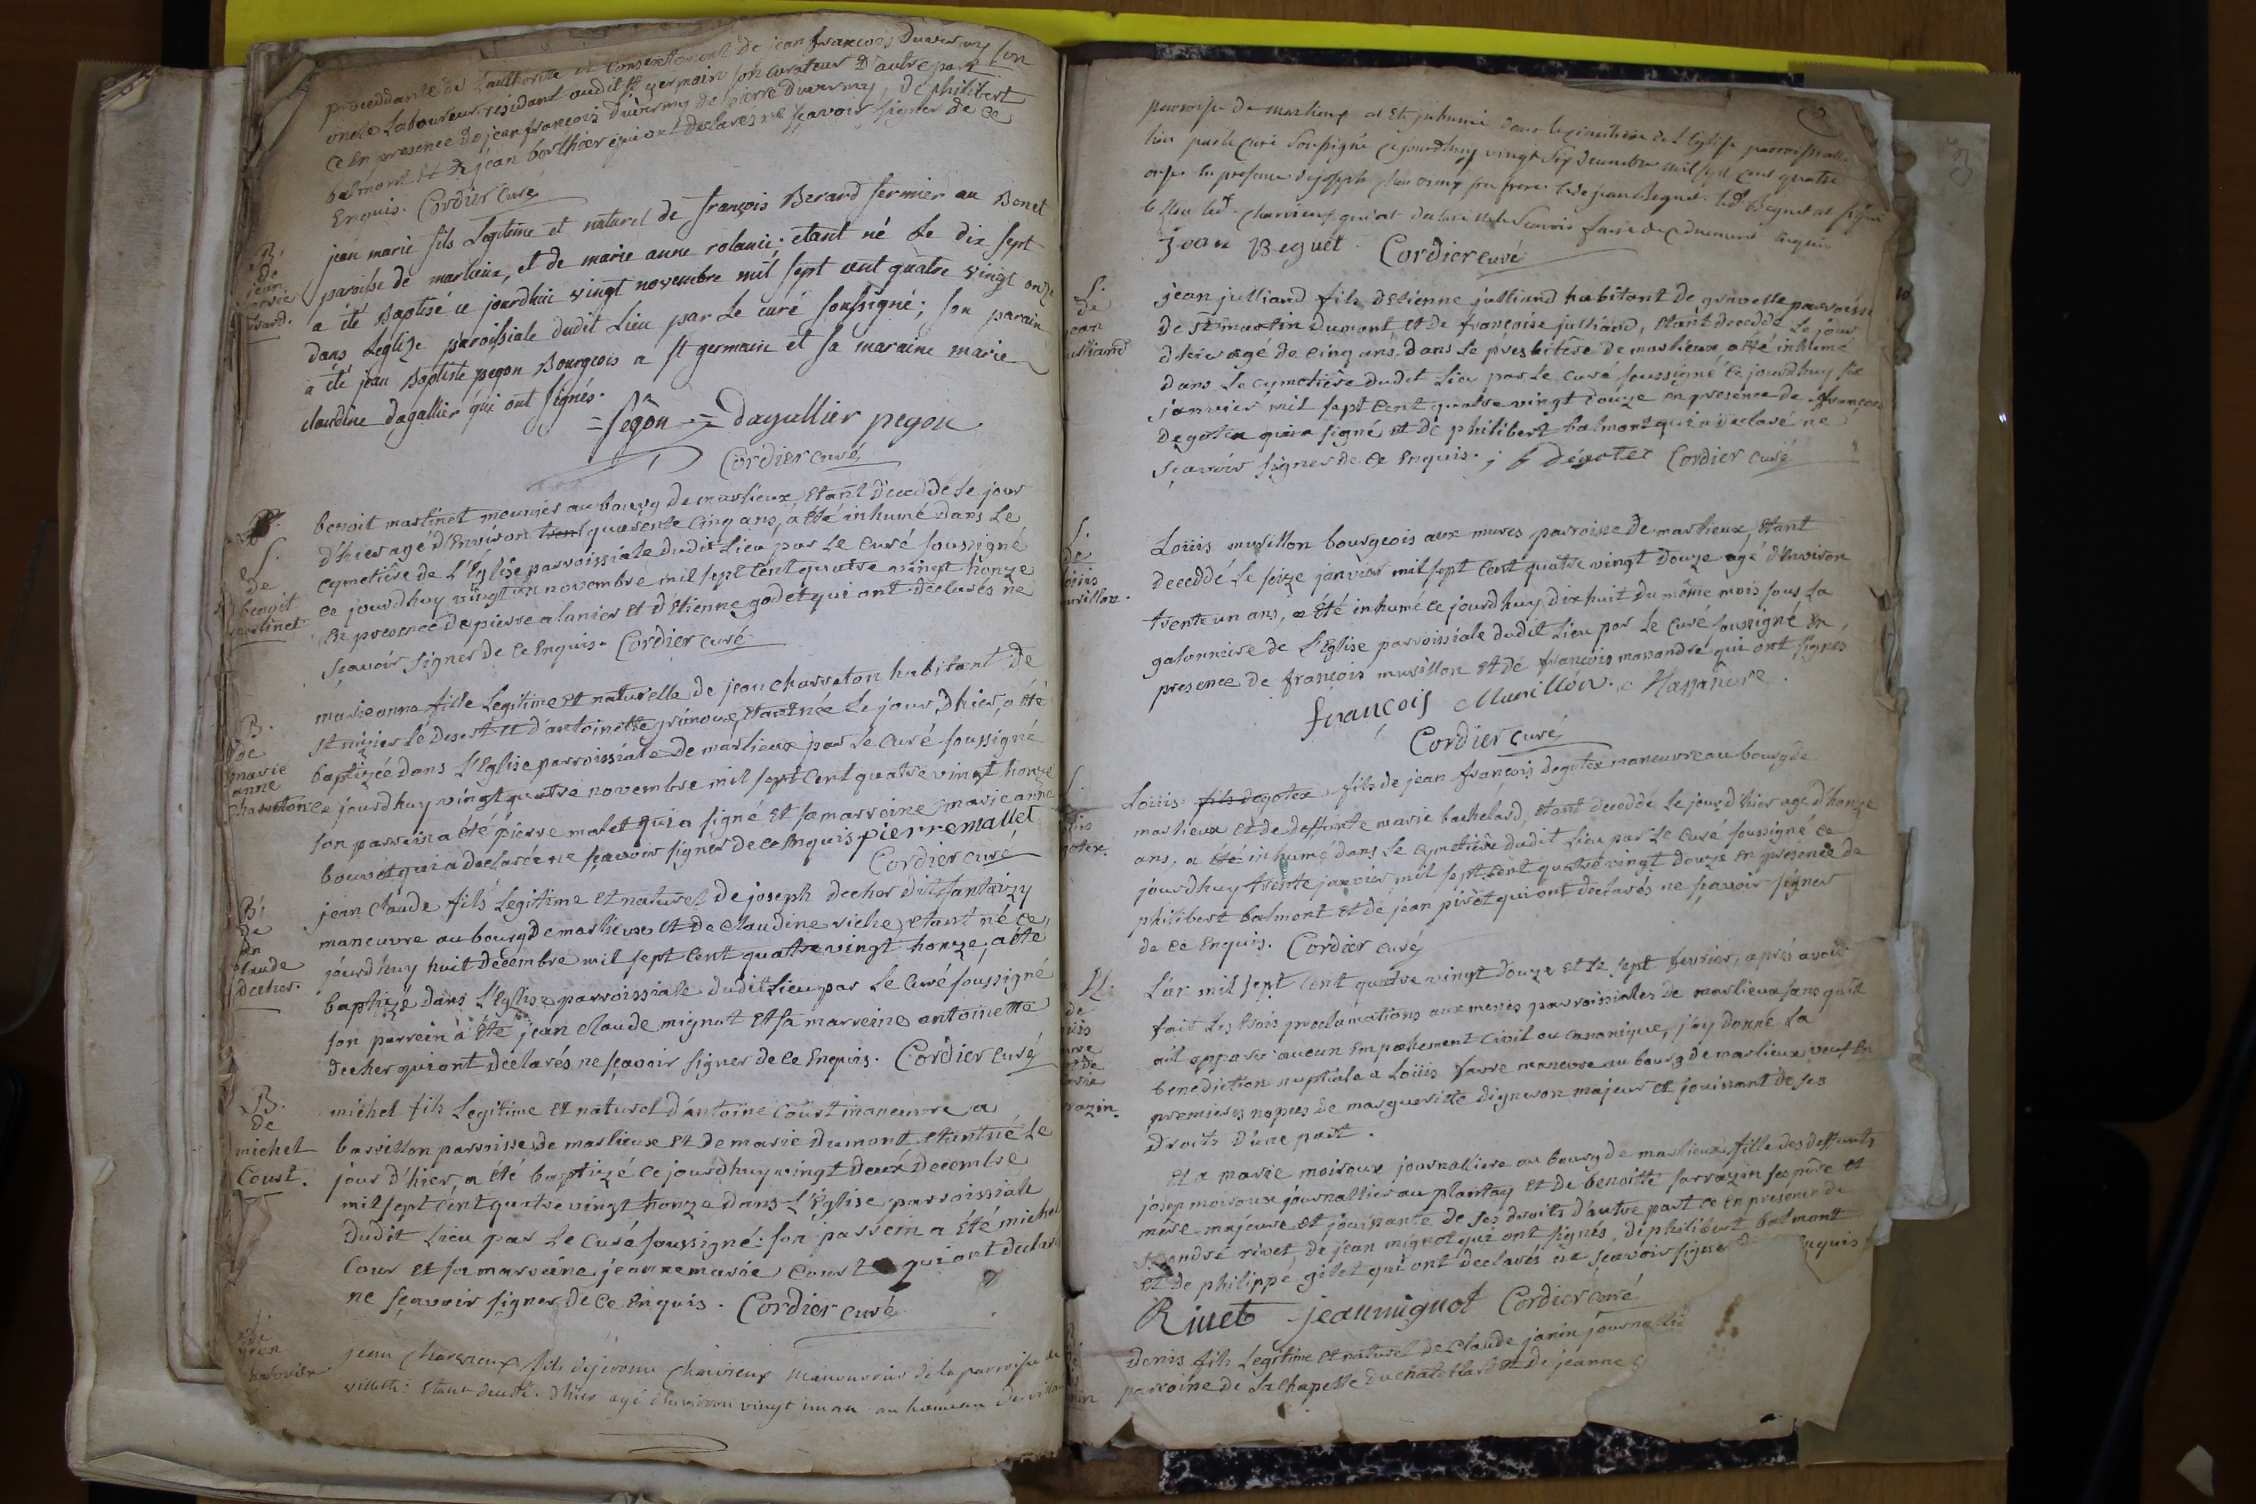 procedante de l'authorité et consentement de jean françois Duvernay son
oncle Laboureur residant audit st germain son curateur d'autre part
ce En presence de jean françois Duverny de pierre Duverny, de philibert
balmont et de jean borthier qui ont declares ne sçavoir signer de ce
Enquis. Cordier curé
B.
de
jean
marie
berard.
jean marie fils Legitime et naturel de françois Berard fermier au Bonet
paroisse de marlieux, et de marie anne rolanie; etant né Le dix sept
a été Baptisé ce jourdhui vingt novembre mil sept cent quatre vingt onze
dans L'eglise paroissiale dudit Lieu par Le curé soussigné; son parain
a été jean Baptiste pegon Bourgeois a st germain et sa maraine marie
claudine dagallier qui ont signés.
= pegon = Dagallier pegon
Cordier curé
S.
de
benoit
martinet
benoit martinet meunier au bourg de marlieux Etant decedde Le jour
d'hier agé d'Environ trent quarente cinq ans, a été inhumé dans Le
cymetiere de L'Eglise parroissiale dudit Lieu par Le curé soussigné
ce jourdhuy vingt un novembre mil sept cent quatre vingt honze
En presence de pierre alanier et d'Etienne godet qui ont declarés ne
sçavoir signer de ce Enquis. Cordier curé
B.
de
marie
anne
Charveton
marie anne fille Legitime et naturelle de jean charveton habitant de
st nizier Le Desert et d'antoinette grinoux, Etant née Le jour d'hier, a été
baptizée dans L'Eglise parroissiale de marlieux par Le curé soussigné
ce jourdhuy vingt quatre novembre mil sept cent quatre vingt honze
son parrein a été pierre malet qui a signé et sa marreine marie anne
bouvét qui a declarée ne sçavoir signer de ce Enquis pierre mallet
Cordier curé
B.
de
jean
claude
decher.
jean claude fils Legitime et naturel de joseph decher dit fantaizy
maneuvre au bourg de marlieux et de claudine riche, etant né ce
jourdhuy huit decembre mil sept cent quatre vingt honze, a été
baptizé dans L'Eglise parroissiale dudit Lieu par Le curé soussigné
son parrein a été jean claude mignot et sa marreine antoinette
decher qui ont declarés ne sçavoir signer de ce Enquis. Cordier curé
B.
de
michel
Court.
michel fils Legitime et naturel d'antoine Court maneuvre a
barillon parroisse de marlieux et de marie Dumont etant né Le
jour d'hier, a été baptizé ce jourdhuy vingt deux Decembre
mil sept cent quatre vingt honze dans L'Eglise parroissiale
dudit Lieu par Le curé soussigné: son parrein a été michel
Cour et sa marreine jeanne marie Court qui ont declaré
ne sçavoir signer de ce Enquis. Cordier curé
jean fils de manouvrier de la parroisse de
villette: Etant decedé d'hier agé d'environ vingt un an au hameau de
parroise de marlieux at Eté inhumé dans le cimitiere de L'Eglise parroissialle
lieu par le curé soussigné cejourdhuy vingt six decembre mil sept cent quatre
onze En presence de joseph son frere et de jean Beguet. Led. Beguet at signé
non led. qui at declaré ne Scavoir faire de ce duement Enquis
jean Beguet Cordier curé
S.
de
jean
julliand
jean julliand fils d'Etienne julliand habitant de gravelle parroisse
de st martin dumont et de françoise julliand, Etant decedde Le jour
d'hier agé de cinq ans dans Le presbitère de marlieux a été inhumé
dans Le cymetière dudit Lieu par Le curé soussigné ce jourdhuy six
janvier mil sept cent quatre vingt douze en presence de françois
Degotex qui a signé et de philibert balmont qui a declaré ne
sçavoir signer de ce Enquis. f degotex Cordier curé
S.
de
Loüis
murillon.
Loüis murillon bourgeois aux mures parroisse de marlieux, Etant
deceddé Le seize janvier mil sept cent quatre vingt douze agé d'Environ
trente un ans, a été inhumé ce jourdhuy dix huit du même mois sous La
galonniere de L'Eglise parroissiale dudit Lieu par Le curé soussigné En
presence de françois murillon et de françois massandre qui ont signés
françois Murillon. Massandre
Cordier curé
Loüis fils degotex, fils de jean françois degotex maneuvre au bourg de
marlieux et de deffunte marie bachelard, etant deceddé Le jour d'hier agé d'honze
ans, a été inhumé dans Le cymetière dudit Lieu par Le curé soussigné ce
jourdhuy trente janvier mil sept cent quatre vingt douze en presence de
philibert balmont et de jean pivet qui ont declarés ne sçavoir signer
de ce Enquis. Cordier curé
M.
de
L'an mil sept cent quatre vingt douze et Le sept fevrier, aprés avoir
fait Les trois proclamations aux messes parroissialles de marlieux sans qu'il
ait apparu aucun Empechement civil ou canonique, j'ay donné La
benediction nuptiale a Loüis favre maneuvre au bourg de marlieux veuf En
premieres nopces de marguerite digneron majeur et jouissant de ses
Droits d'une part.
Et a marie moiroux journalliere au bourg de marlieux fille des deffunts
josep moiroux journallier au plantay et de benoitte sarrazin ses père et
mère majeure et jouissante de ses droits d'autre part ce En presence de
andré rivet, de jean mignot qui ont signés, de philibert balmont
et de philippe gilet qui ont declarés ne sçavoir signer Enquis
Rivet jean mignot Cordier curé
Denis fils Legitime et naturel de Claude janin journallier
parroisse de La chapelle du chatelard et de jeanne